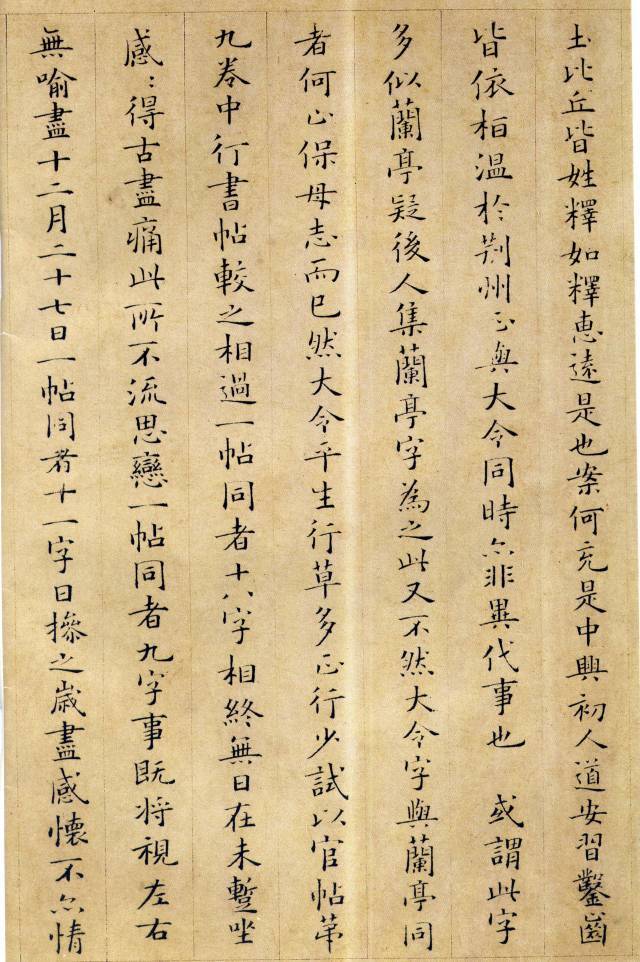 土比丘皆姓釋如釋惠遠是也案何充是中興初人道安習鑿齒
皆依桓溫於荆州正與大令同時亦非異代事也 或謂此字
多似蘭亭疑後人集蘭亭字為之此又不然大令字與蘭亭同
者何止保母志而已然大令平生行草多正行少試以官帖苐
九卷中行書帖較之相過一帖同者十八字相終無日在未蹔坐
感〻得古盡痛此所不流思戀一帖同者九字事既將視左右
無喻盡十二月二十七日一帖同者十一字日搽之歲盡感懷不亦情